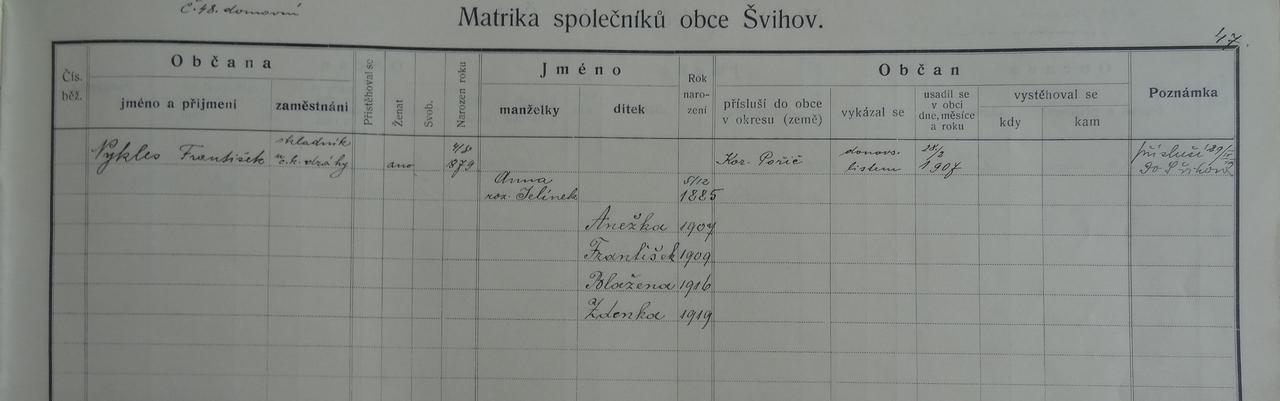 č. 48. domovní
Matrika společníků obce Švihov.
47.
Čís. běž.
Občana
jméno a příjmení
zaměstnání
Přistěhoval se
Ženat
Svob.
Narozen roku
Jméno
manželky
dítek
Rok naro- zení
Občan
přísluší do obce v okresu (země)
vykázal se
usadil se v obci dne, měsíce a roku
vystěhoval se
kdy
kam
Poznámka
Vykles František
skladník
c. k. dráhy
ano
4/8
879
Koz. Pořič
domovs.
listem
28/2
1907
přísluší
do Švihova
Anna
roz. Jelínek
5/12
1885
Anežka 1907
František 1909
Blažena 1916
Zdenka 1919